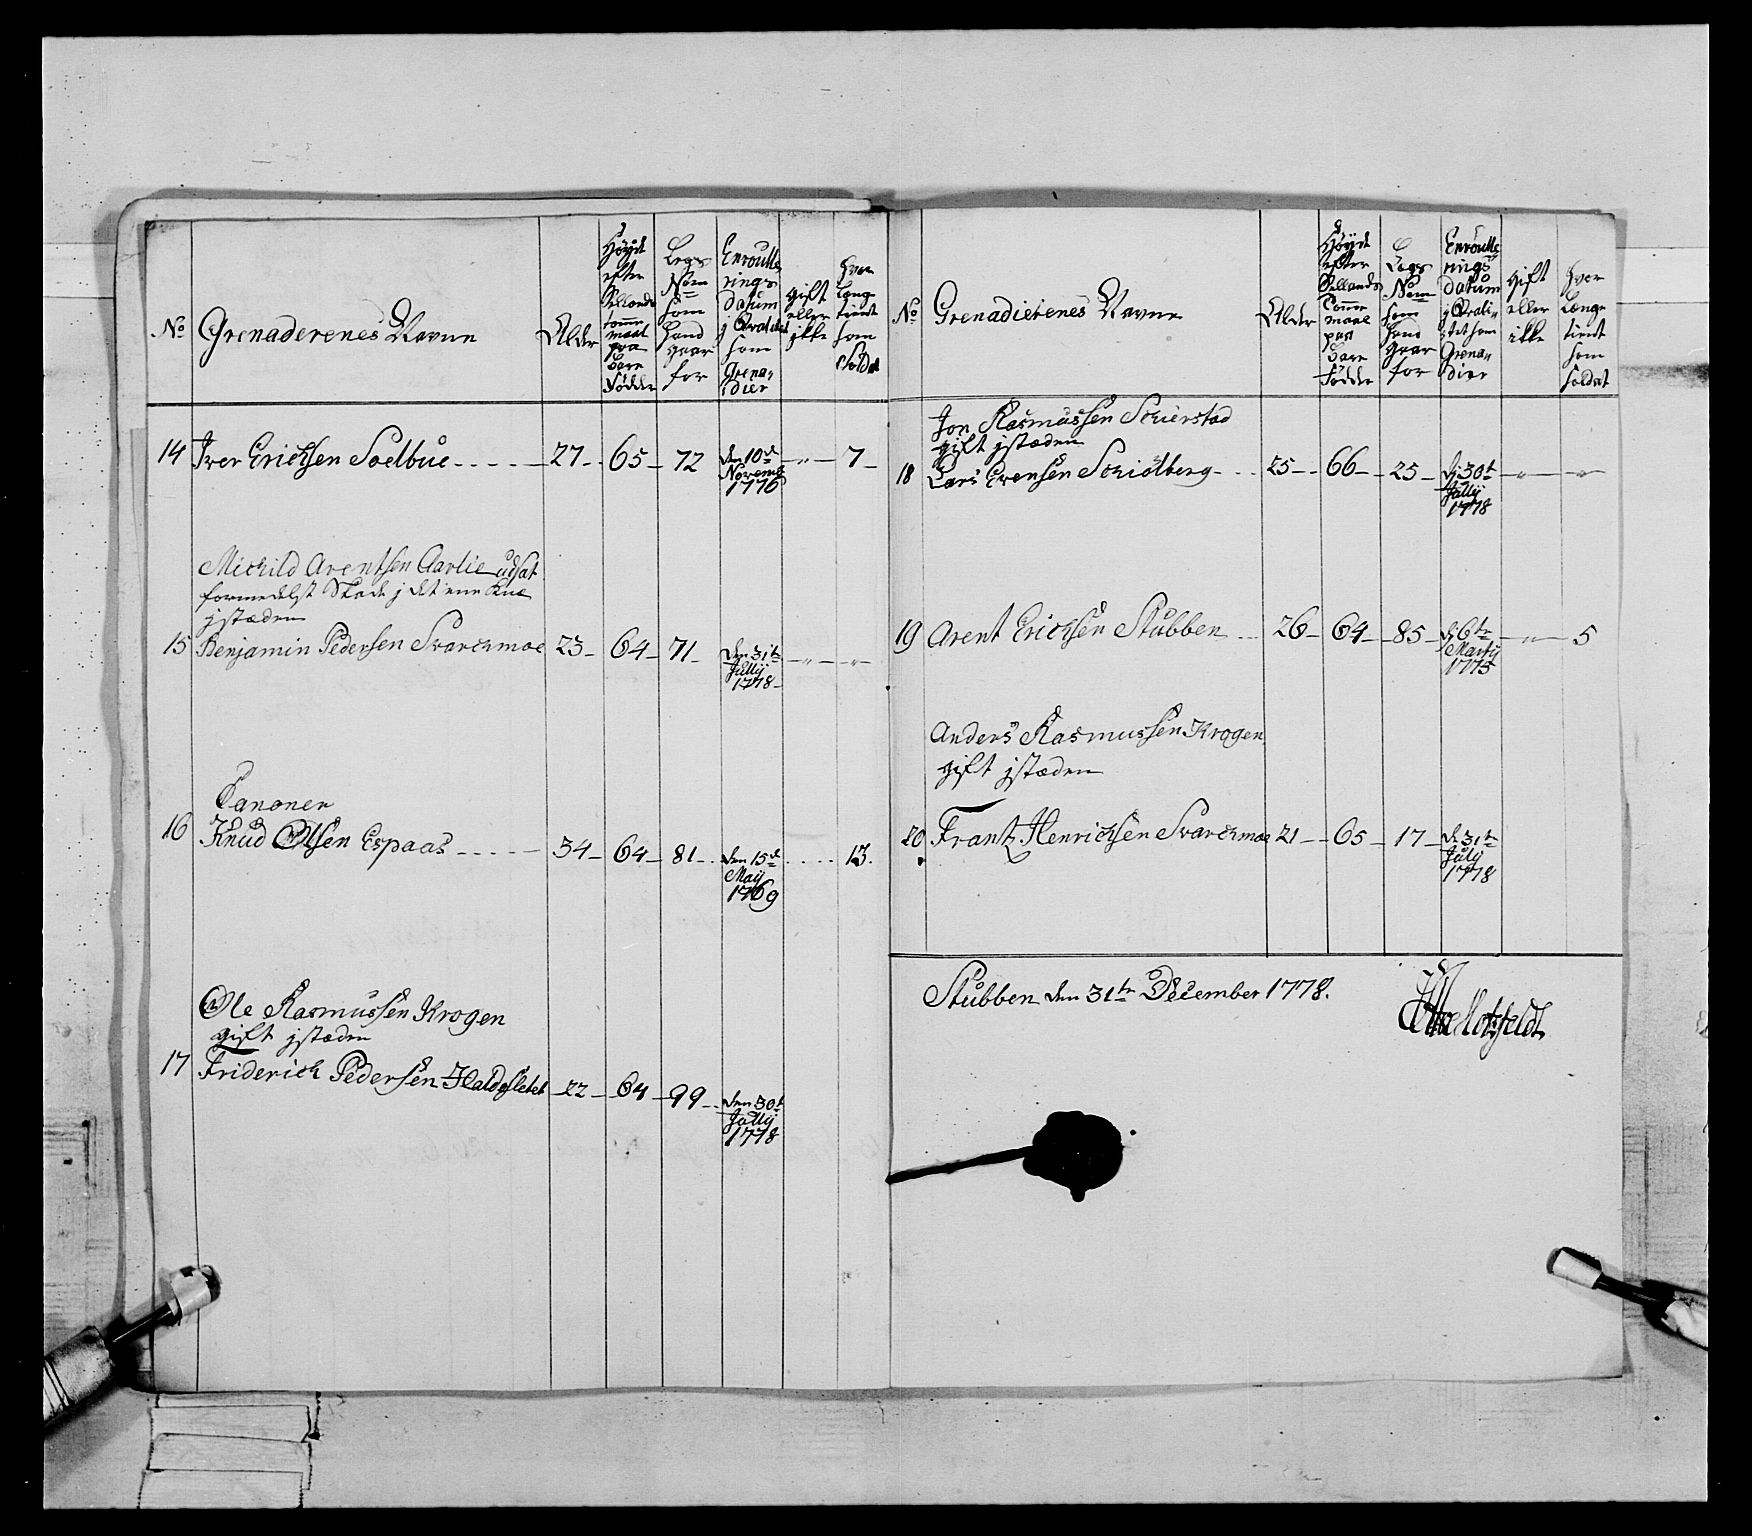 No
Grenaderenes Navne
Alder
Høyde
efter
Sellands
tomme
maal
paa
bare
Fødder
Legs
Nom
som
hand
giør
for
Enroulle
rings
Datum
j
som
Grena-
dier
gift
eller
ikke
hvor
længe
tient
som
Soldat
14 Iver Erichsen Soelbue - - - - - 27 - 65 - 72 den 10de - " - 7 -
Novemb
1776
Michild Arentsen Aarlie udsat
formedelst Skade j det ene Knæ
jstæden
15 Benjamin Pedersen Svarchmoe 23 - 64 - 71 - den 31te - " - "
Jullij
1778 -
Canoner
16 Knud Olsen Espaas - - - - - 34 - 64 - 81 - den 15de - - - - 13.
Maij
1769
Ole Rasmussen Krogen
gift jstæden
17 Friderich Pedersen Haldosletet - 22 - 64 - 99 - den 30te
Jullij
1778
No
Grenadierenes Navne
Alder
Høyde
efter
Sellands
Tomme
maal
paa
bare
Fødder
Legs
Nom
som
hand
giør
for
Enroulle
rings
datum
j Qvali-
tet som
Grena-
dier
gift
eller
ikke
hvor
længe
tient
som
soldat
Jon Rasmussen Schierstad
gift jstæden
18 Lars Evensen Schiølberg - - - 25 - - 66 - 25 - d: 30te - " - "
Jullij
1778
19 Arent Erichsen Stubben - - - 26 - 64 - 85 - d: 6te - " - 5
Martij
1775
Anders Rasmussen Krogen
gift jstæden
20 Frantz Henrichsen Svarchmoe 21 - - 65 - 17 - d: 31te
July
1778
Stubben den 31te December 1778.